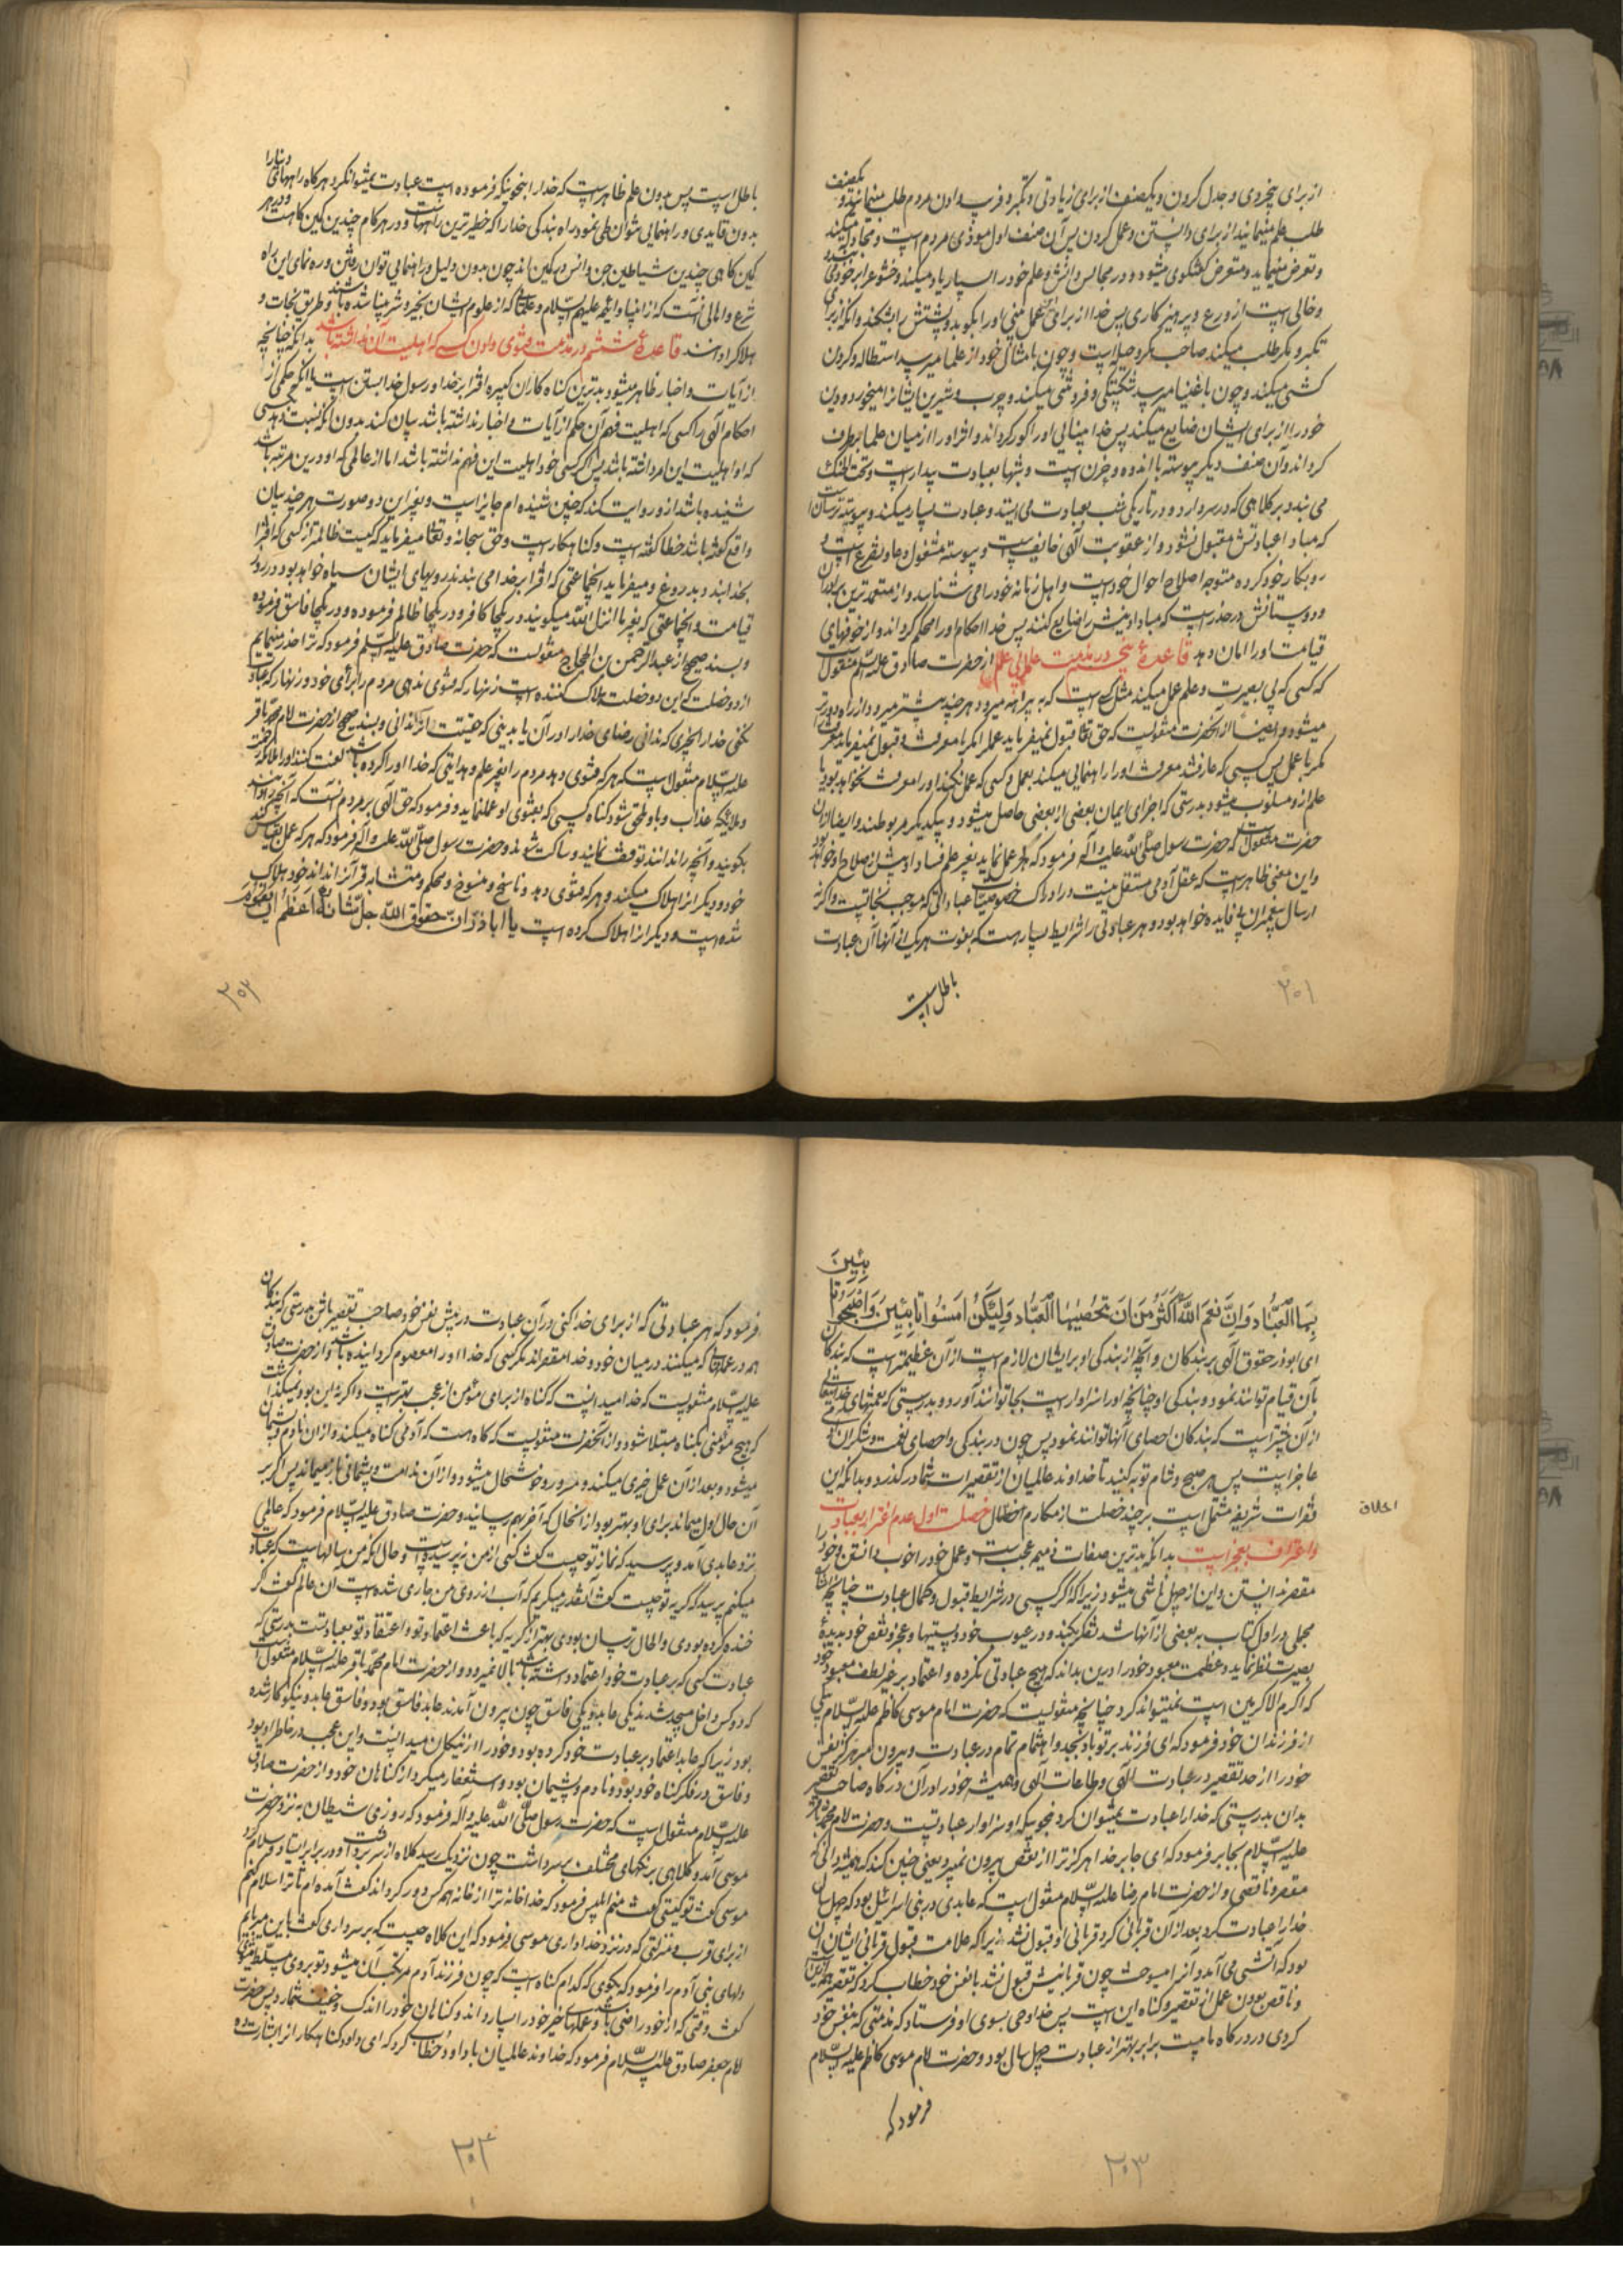 از برای بیخردی و جدل کردن و یکصنف از برای زیادتی و تکبر و فریب دادن مردم طلب مینمایند و یکصنف
طلب علم مینمایند از برای دانستن و عمل کردن پس آن صنف اول موذی مردم است و مجادله میکند
و تعرض مینماید و متعرض گفتگوی میشود و در مجالس دانش و علم خود را بسیار یاد میکند و خشوع را بر خود می بندد
و خالی است از ورع و پرهیزکاری پس خدا از برای این عمل بینی او را بکوبد و پشتش را بشکند و آنکه از برای
تکبر و مکر طلب میکند صاحب مکر و حیله است و چون بامثال خود از علما میرسد استطاله و گردن
کشی میکند و چون باغنیا میرسد شکستگی و فروتنی میکند و چرب و شیرین ایشانرا میخورد و دین
خود را از برای ایشان ضایع میکند پس خدا بینائی او را کور گرداند و اثر او را از میان علما برطرف
گرداند و آن صنف دیگر پیوسته با اندوه و حزن است و شبها بعبادت بیدار است و تحت الحنک
می بندد بر کلاهی که در سر دارد و در تاریکی شب بعبادت می ایستد و عبادت بسیار میکند و پیوسته ترسان است
که مبادا عبادتش مقبول نشود و از عقوبت الهی خایف است و پیوسته مشغول دعا و تضرع است و
رو بکار خود کرده متوجه اصلاح احوال خود است و اهل زمانه خود را می شناسد و از معتمدترین برادران
و دوستانش در حذر است که مبادا دینش را ضایع کنند پس خدا احکام او را محکم گرداند و از خوفهای
قیامت او را امان دهد قاعدۀ پنجم در مذمت عمل بی علم از حضرت صادق علیه السلم منقول است
که کسی که بی بصیرت و علم عمل میکند مثل کسی است که به بیراهه میرود هر چند بیشتر میرود از راه دورتر
میشود و ایضاً از آنحضرت منقولست که حق تعالی قبول نمیفرماید عملی را مگر با معرفت و قبول نمیفرماید معرفت را
مگر با عمل پس کسی که عارف شد معرفت او را راهنمایی میکند بعمل و کسی که عمل نکند او را معرفت نخواهد بود یا
علم از او مسلوب میشود بدرستی که اجزای ایمان بعضی از بعضی حاصل میشود و بیکدیگر مربوطند و ایضاً از آن
حضرت منقول است که حضرت رسول صلی الله علیه و آله فرمود که هر که عمل نماید بغیر علم فساد او بیش از صلاح او خواهد بود
و این معنی ظاهر است که عقل آدمی مستقل نیست در ادراک خصوصیات عباداتی که موجب نجاتست و اگر نه
ارسال پیغمبران بی فایده خواهد بود و هر عبادتی را شرایط بسیار هست که بفوت هر یک از آنها آن عبادت
باطل است
۲۰۱
باطل است پس بدون علم ظاهر است که خدا را بنحویکه فرموده است عبادت نمیتوان کرد هر گاه راههای دنیا را
بدون قایدی و راهنمایی نتوان طی نمود راه بندگی خدا را که خطیرترین راههاست و در هر گام چندین کمین گاهست و در هر
کمین گاهی چندین شیاطین جن و انس در کمین اند چون بدون دلیل و راهنمایی توان رفتن و ره نمای این راه
شرع و اهالی آنست که از انبیا و ائمه علیهم السلام و علمائی که از علوم ایشان بخیر و شر بینا شده باشند و طریق نجات و
هلاک را دانند قاعدۀ ششم در مذمت فتوی دادن کسی که اهلیت آن نداشته باشد بدانکه چنانچه
از آیات و اخبار ظاهر میشود بدترین گناه کاران کبیره افترا بر خدا و رسول خدا بستن است یا آنکه حکمی از
احکام الهی را کسی که اهلیت فهم آن حکم از آیات و اخبار نداشته باشد بیان کند بدون آنکه نسبت دهد بکسی
که او اهلیت این امر داشته باشد پس اگر کسی خود اهلیت این فهم نداشته باشد اما از عالمی که او درین مرتبه باشد
شنیده باشد از و روایت کند که چنین شنیده ام جایز است و بغیر این دو صورت هر چند بیان
واقع گفته باشد خطا گفته است و گناهکار است و حق سبحانه و تعالی میفرماید که کیست ظالمتر از کسی که افترا
بخدا بندد بدروغ و میفرماید آنجماعتی که افترا بر خدا می بندند رویهای ایشان سیاه خواهد بود در روز
قیامت و آنجماعتی که بغیر ما انزل الله میگویند در یکجا کافر و در یکجا ظالم فرموده و در یکجا فاسق فرموده
و بسند صحیح از عبدالرحمن بن الحجاج منقولست که حضرت صادق علیه السلم فرمود که ترا حذر مینمایم
از دو خصلت که این دو خصلت هلاک کننده است زنهار که فتوی ندهی مردم را برأی خود و زنهار که عبادت
نکنی خدا را بچیزی که ندانی رضای خدا را در آن یا بدینی که حقیقت آنرا ندانی و بسند صحیح از حضرت امام محمد باقر
علیه السلام منقول است که هر که فتوی دهد مردم را بغیر علم و هدایتی که خدا او را کرده باشد لعنت کنند او را ملائکه رحمت
و ملائیکه عذاب و باو ملحق شود گناه کسی که بفتوی او عمل نماید و فرمود که حق الهی بر مردم آنست که آنچه را دانند
بگویند و آنچه را ندانند توقف نمایند و ساکت شوند و حضرت رسول صلی الله علیه و آله فرمود که هر که عمل بقیاس کند
خود و دیگرانرا هلاک میکند و هر که فتوی دهد و ناسخ و منسوخ و محکم و متشابه قرآنرا نداند خود هلاک
شده است و دیگرانرا هلاک کرده است یا اباذر ان حقوق الله جل ثنائه اعظم من ان یقوم
۲۰۲
بِهَا العِبَادُ وَ اِنَّ نِعَمَ اللهِ اَکثَرُ مِن اَن تُحصِیَهَا العِبَادُ وَ لَیکِن اَمسَوُا تَائِبِینَ وَ اَصبَحُوا تَائِبِینَ
ای ابوذر حقوق الهی بر بندگان و آنچه از بندگی او بر ایشان لازم است از آن عظیمتر است که بندگان
بآن قیام توانند نمود و بندگی او چنانچه او را سزاوار است بجا توانند آورد و بدرستی که نعمتهای خدایتعالی
از آن بیشتر است که بندگان احصای آنها توانند نمود پس چون در بندگی و احصای نعمت و شکر آن آدمی
عاجز است پس هر صبح و شام توبه کنید تا خداوند عالمیان از تقصیرات شما در گذرد و بدانکه این
فقرات شریفه مشتمل است بر چند خصلت از مکارم خصال خصلت اول عدم اغترار بعبادت
اخلاق
و اعتراف بعجز است بدانکه بدترین صفات ذمیمه عجب است و عمل خود را خوب دانستن و خود را
مقصر ندانستن و این از جهل ناشی میشود زیرا که اگر کسی در شرایط قبول و کمال عبادت چنانچه
مجملی در اول کتاب به بعضی از آنها شد تفکر بکند و در عیوب خود و پستیها و عجز و نقص خود بدیدۀ
بصیرت نظر نماید و عظمت معبود خود را درین بداند که هیچ عبادتی نکرده و اعتماد بر غیر لطف معبود خود
که اکرم الاکرمین است نمیتواند کرد چنانچه منقولیست که حضرت امام موسی کاظم علیه السلام بیکی
از فرزندان خود فرمود که ای فرزند بر تو باد بجد و اهتمام تمام در عبادت و بیرون مبر هرگز نفس
خود را از حد تقصیر در عبادت الهی و طاعات الهی و همیشه خود را در آن درگاه صاحب تقصیر
بدان بدرستی که خدا را عبادت نمیتوان کرد بنحویکه او سزاوار عبادتست و حضرت امام محمد باقر
علیه السلام بجابر فرمود که ای جابر خدا هرگز ترا از نقص بیرون نبرد یعنی چنین کند که همیشه دانی که
مقصر و ناقصی و از حضرت امام رضا علیه السلام منقول است که عابدی در بنی اسرائیل بود که چهل سال
خدا را عبادت کرد بعد از آن قربانی کرد قربانی او قبول نشد زیرا که علامت قبول قربانی ایشان آن
بود که آتشی می آمد و آنرا میسوخت چون قربانیش قبول نشد با نفس خود خطاب کرد که تقصیر همه از تست
و ناقص بودن عمل از تقصیر و گناه این است پس خدا وحی بسوی او فرستاد که مذمتی که بنفس خود
کردی در درگاه ما بهتر از عبادت چهل سال بود و حضرت امام موسی کاظم علیه السلام
فرمود که
۲۰۳
فرمود که هر عبادتی که از برای خدا کنی در آن عبادت در پیش نفس خود صاحب تقصیر باش بدرستی که بندگان
همه در عملهائی که میکنند در میان خود و خدا مقصراند مگر کسی که خدا او را معصوم گردانیده باشد و از حضرت صادق
علیه السلام منقولست که خدا میدانست که گناه از برای مؤمن از عجب بهتر است و اگر نه این بود نمیگذاشت
که هیچ مؤمنی بگناه مبتلا شود و از آنحضرت منقولیست که گاه هست که آدمی گناه میکند و از آن نادم و پشیمان
میشود و بعد از آن عمل خیری میکند و مسرور و خوشحال میشود و از آن ندامت و پشیمانی باز میماند پس اگر بر
آن حال اول میماند برای او بهتر بود از آنحال که آخر بهم رسانید و حضرت صادق علیه السلام فرمود که عالمی
نزد عابدی آمد و پرسید که نماز تو چیست گفت کسی از من نپرسیده است و حال آنکه من سالهاست که عبادت
میکنم پرسید گریه تو چیست گفت آنقدر میگریم که آب از روی من جاری شده است آن عالم گفت اگر
خنده کرده بودی و الحال ترسان بودی بهتر از گریه که باعث اعتماد تو و اعتقاد تو بعبادتت بدرستی که
عبادت کسی که بر عبادت خود اعتماد داشته باشد بالا نمیرود و از حضرت امام محمد باقر علیه السلام منقول است
که دو کس داخل مسجد شدند یکی عابد و یکی فاسق چون بیرون آمدند عابد فاسق بود و فاسق عابد و نیکوکار شده
بود زیرا که عابد اعتماد بر عبادت خود کرده بود و خود را از نیکان میدانست و این عجب در خاطر او بود
و فاسق در فکر گناه خود بود و نادم و پشیمان بود و استغفار میکرد از گناهان خود و از حضرت صادق
علیه السلام منقول است که حضرت رسول صلی الله علیه و آله فرمود که روزی شیطان به نزد حضرت
موسی آمد و کلاهی برنگهای مختلف بر سر داشت چون نزدیک رسید کلاه از سر برداشت و در برابر ایستاد و سلام کرد
موسی گفت تو کیستی گفت منم ابلیس فرمود که خدا خانه ترا از خانه همه کس دور گرداند گفت آمده ام تا ترا سلام کنم
از برای قرب و منزلتی که در نزد خدا داری موسی فرمود که این کلاه چیست که بر سر داری گفت باین میربایم
دلهای بنی آدم را فرمود که بگوی که کدام گناه است که چون فرزند آدم مرتکب آن میشود تو بر وی مسلط میشوی
گفت وقتی که از خود راضی باشد و عملهای خیر خود را بسیار داند و گناهان خود را اندک و خفیف شمارد پس حضرت
امام جعفر صادق علیه السلام فرمود که خداوند عالمیان با داود خطاب کرد که ای داود گناهکار انرا بشارت ده
۲۰۴